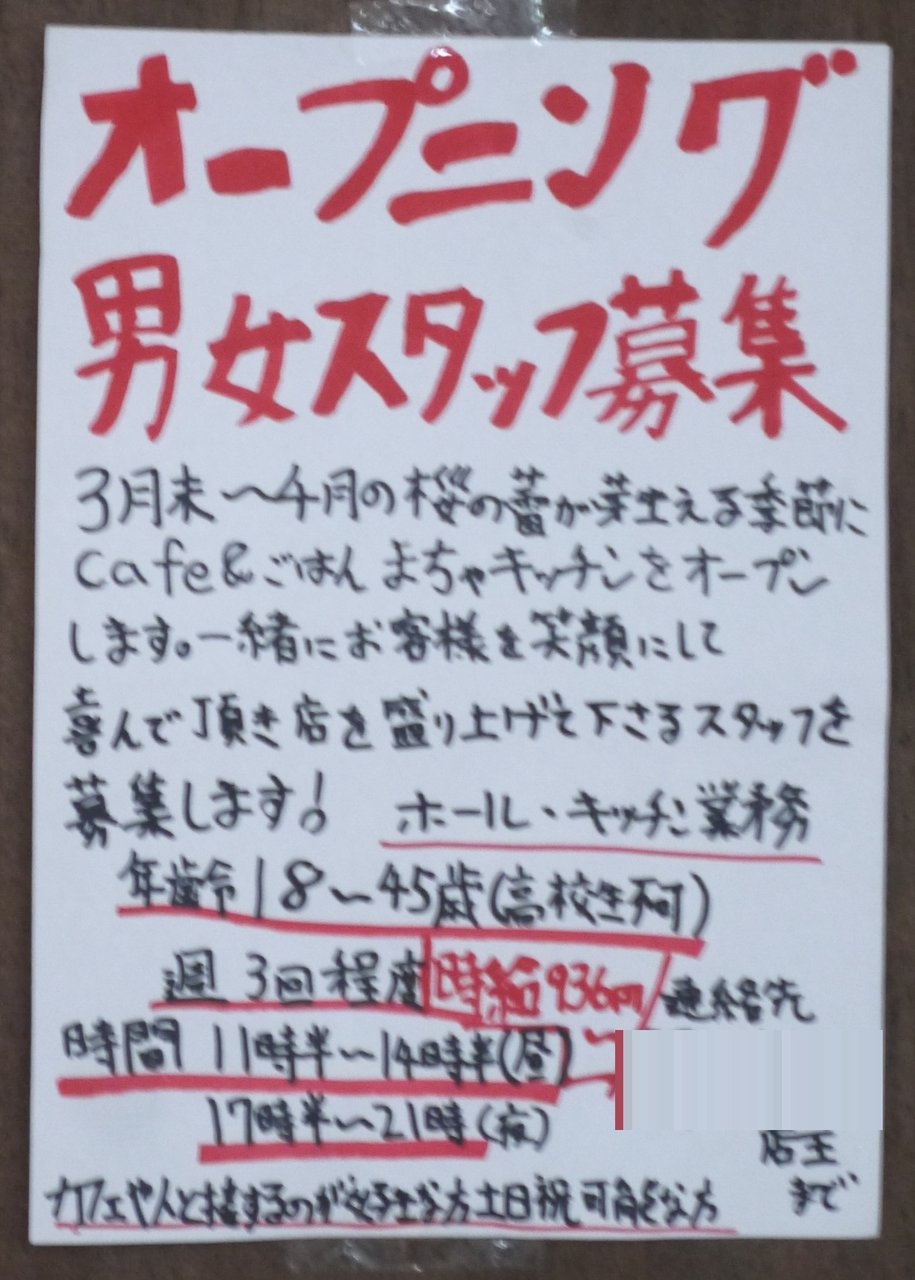 オープニング
男女スタッフ募集
3月末〜4月の桜の蕾が芽生える季節に
cafe&ごはん まちゃキッチンをオープン
します。一緒にお客様を笑顔にして
喜んで頂き店を盛り上げて下さるスタッフを
募集します! ホール・キッチン業務
年齢18〜45歳(高校生不可)
週3回程度 時給936円 連絡先
時間 11時半〜14時半(昼)
17時半〜21時(夜)
店主
まで
カフェや人と接するのが好きな方 土日祝可能な方